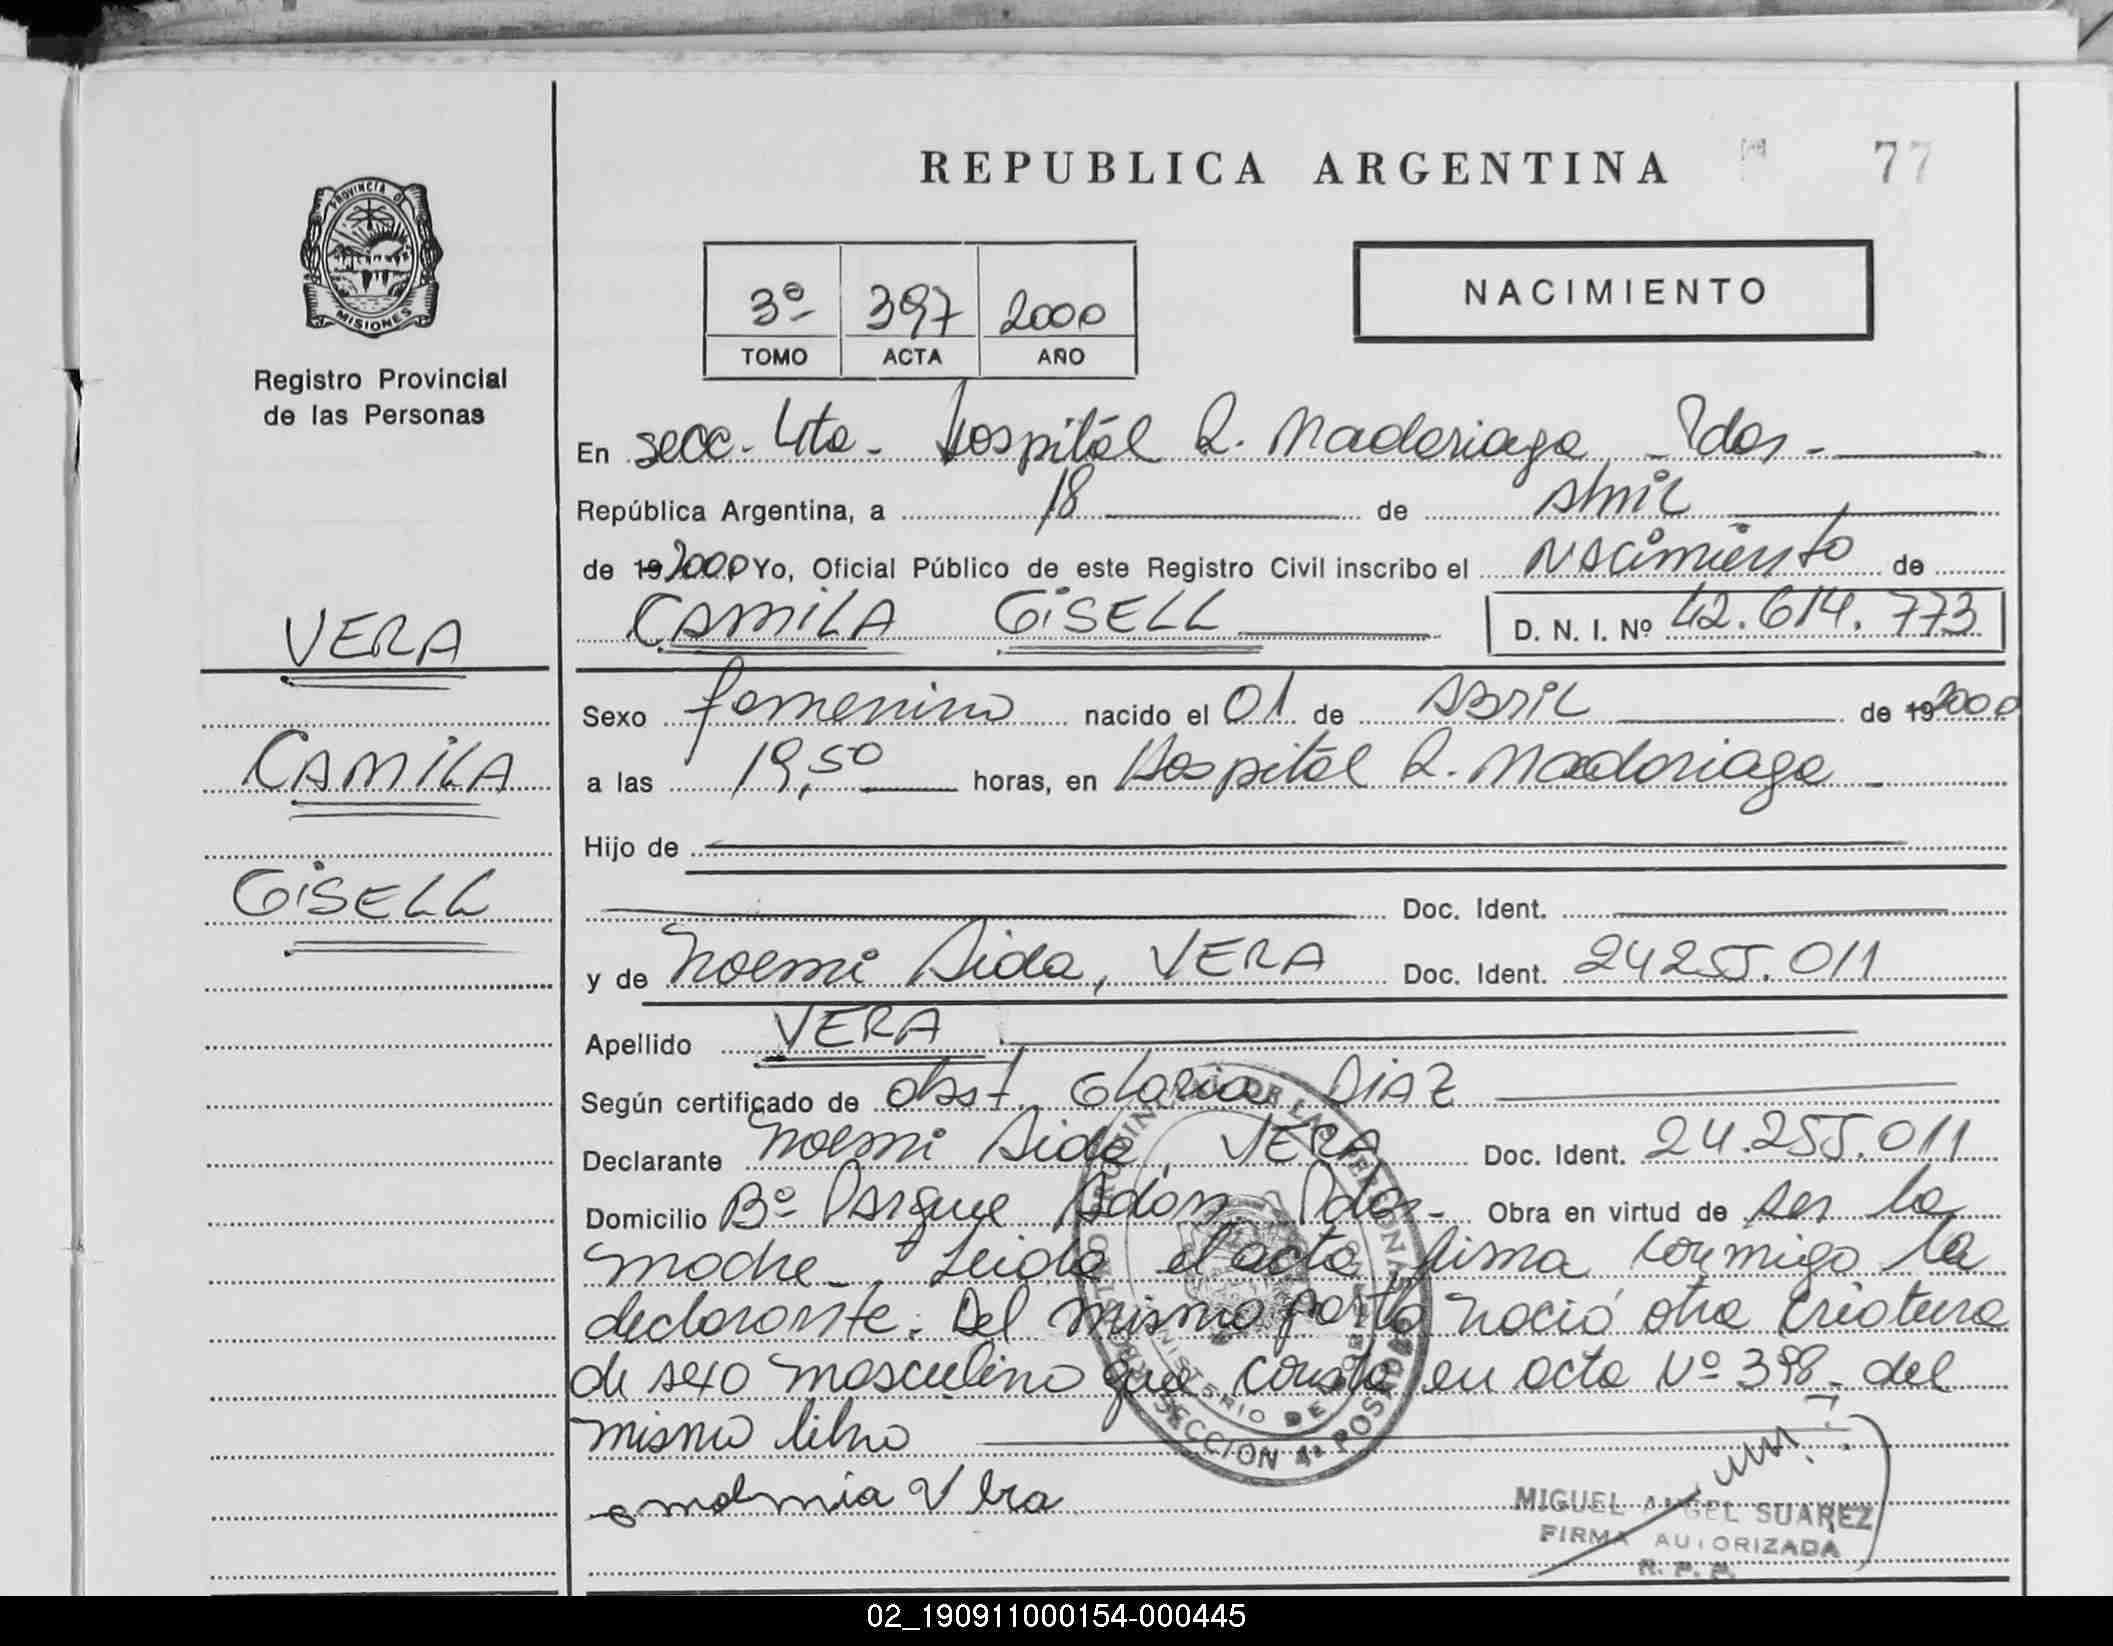 REPUBLICA ARGENTINA
77
PROVINCIA DE
MISIONES
Registro Provincial
de las Personas
3º 397 2000
TOMO ACTA AÑO
NACIMIENTO
En secc. 4ta. Hospital R. Madariaga - Pdas -
República Argentina, a 18 de Abril
de 19 2000 Yo, Oficial Público de este Registro Civil inscribo el Nacimiento de
CAMiLA GiSELL D. N. I. Nº 42.614.773
VERA
CAMiLA
GiSELL
Sexo femenino nacido el 01 de Abril de 19 2000
a las 19,50 horas, en Hospital R. Madariaga
Hijo de
Doc. Ident.
y de Noemi Aida, VERA Doc. Ident. 24255.011
Apellido VERA
Según certificado de obst. Gloria DiAZ
Declarante Noemi Aida, VERA Doc. Ident. 24.255.011
Domicilio Bº Parque Adam Pdas- Obra en virtud de ser la
madre. Leida el acta firma conmigo la
declarante. Del mismo parto nació otra criatura
de sexo masculino que consta en acta Nº 398 - del
mismo libro
Vera
SECCION 4ª POSADAS
MIGUEL ANGEL SUAREZ
FIRMA AUTORIZADA
R. P. P.
02_190911000154-000445